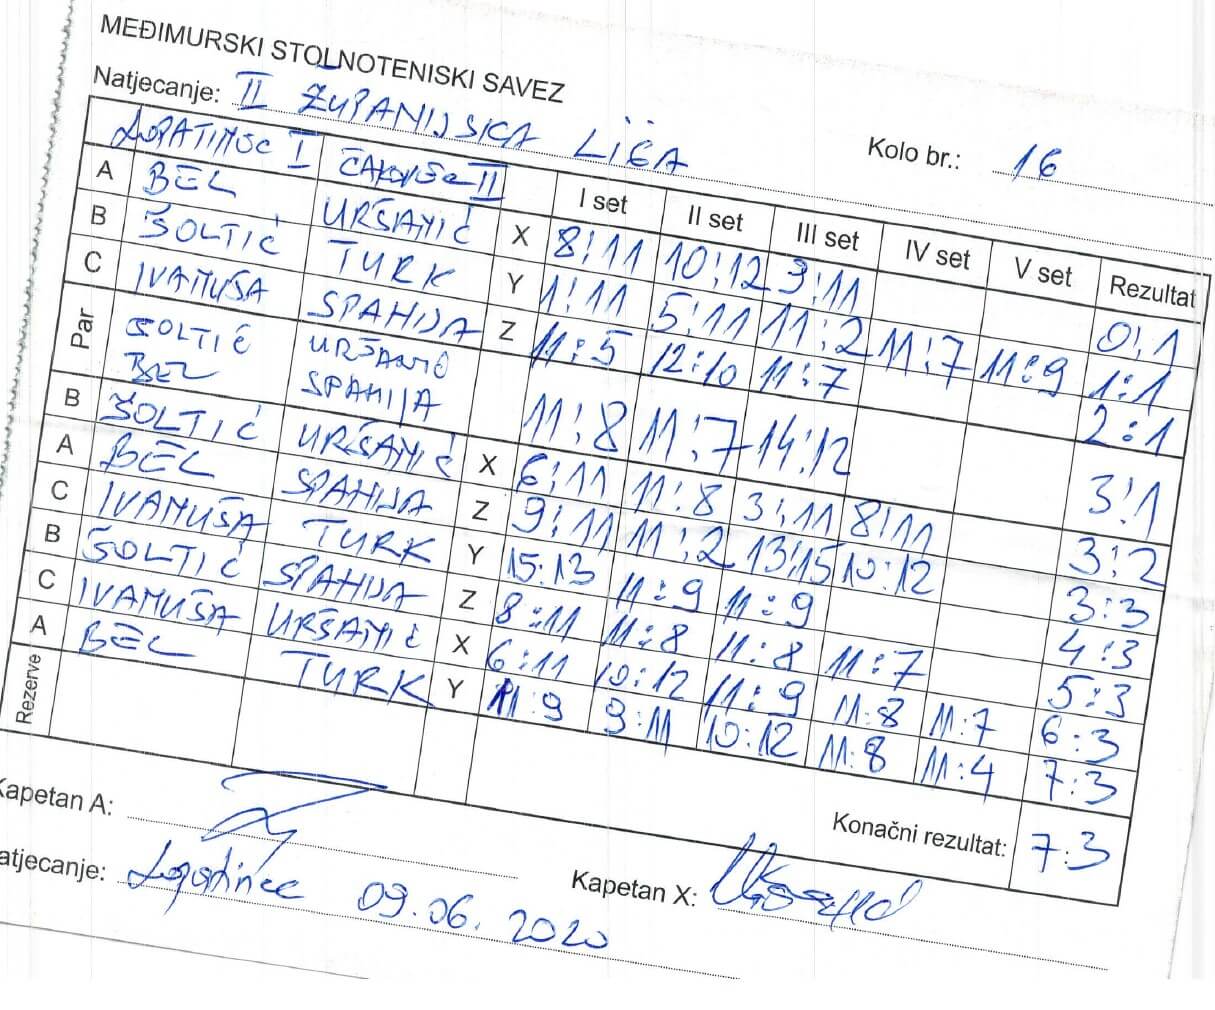 MEĐIMURSKI STOLNOTENISKI SAVEZ
Natjecanje: II ŽUPANIJSKA LIGA Kolo br.: 16
LOPATINEC I ČAKOVEC II I set II set III set IV set V set Rezultat
A BEL URŠANIĆ X 8:11 10:12 9:11 0:1
B ŠOLTIĆ TURK Y 1:11 5:11 11:2 11:7 11:9 1:1
C IVANUŠA SPAHIJA Z 11:5 12:10 11:7 2:1
Par ŠOLTIĆ BEL URŠANIĆ SPAHIJA 11:8 11:7 14:12 3:1
B ŠOLTIĆ URŠANIĆ X 6:11 11:8 3:11 8:11 3:2
A BEL SPAHIJA Z 9:11 11:2 13:15 10:12 3:3
C IVANUŠA TURK Y 15:13 11:9 11:9 4:3
B ŠOLTIĆ SPAHIJA Z 8:11 11:8 11:8 11:7 5:3
C IVANUŠA URŠANIĆ X 6:11 10:12 11:9 11:8 11:7 6:3
A BEL TURK Y 11:9 9:11 10:12 11:8 11:4 7:3
Rezerve
Konačni rezultat: 7:3
Kapetan A:
Kapetan X:
atjecanje: Lopatinec 09.06.2020